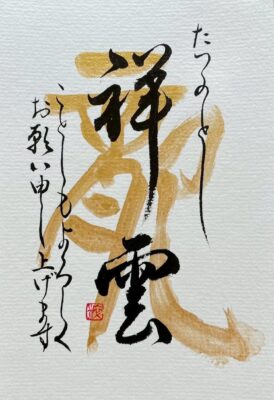 たつのとし
祥雲
龍
ことしもよろしく
お願い申し上げます